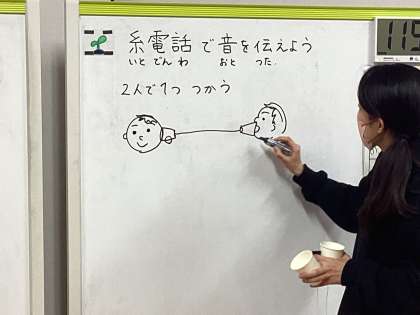 糸電話で音を伝えよう
いと でん わ おと つた
2人で1つ つかう
115